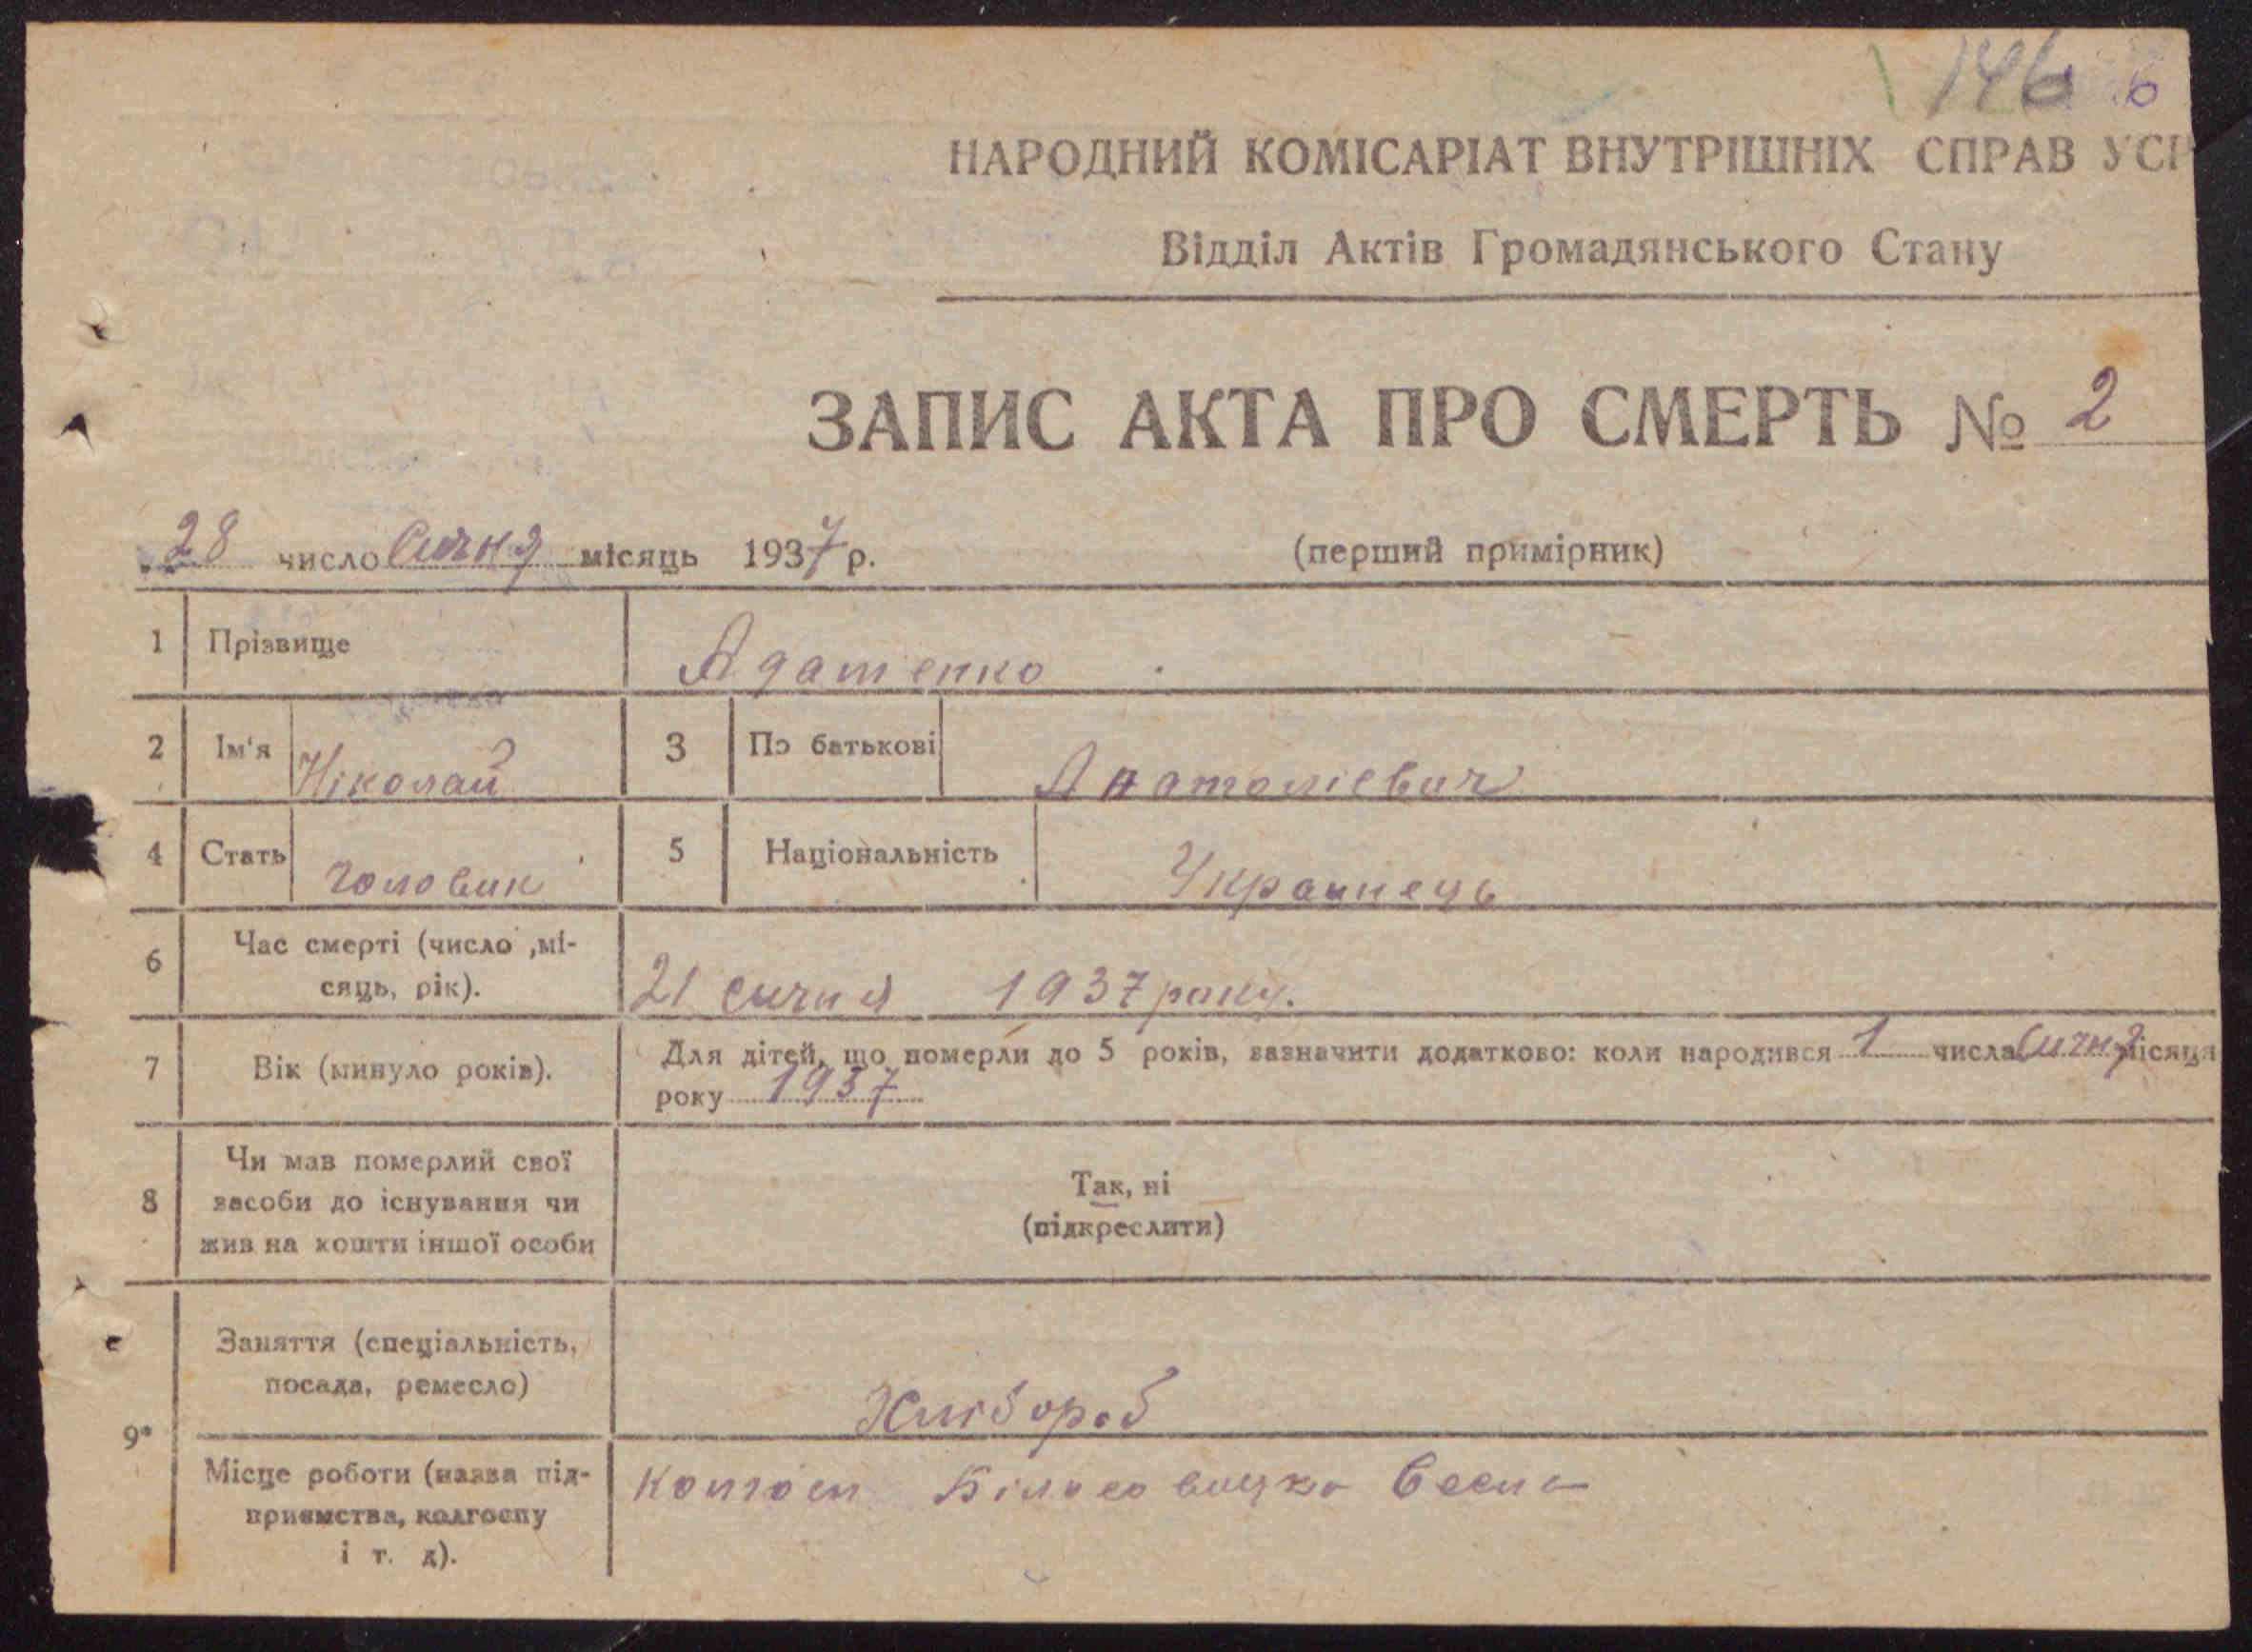 146 6
НАРОДНИЙ КОМІСАРІАТ ВНУТРІШНІХ СПРАВ УСР
Відділ Актів Громадянського Стану
ЗАПИС АКТА ПРО СМЕРТЬ № 2
28 число Січня місяць 1937 р. (перший примірник)
1 Прізвище Адаменко
2 Ім'я Ніколай 3 По батькові Анатолієвич
4 Стать Чоловик 5 Національність Украинець
6 Час смерті (число ,мі-
сяць, рік). 21 Січня 1937 року.
7 Вік (минуло років). Для дітей, що померли до 5 років, зазначити додатково: коли народився 1 числа Січня місяця
року 1937
8 Чи мав померлий свої
засоби до існування чи
жив на кошти іншої особи
Так, ні
(підкреслити)
9* Заняття (спеціальність,
посада, ремесло) Хлібороб
Місце роботи (назва під-
приємства, колгоспу
і т. д). Колгосп Весна